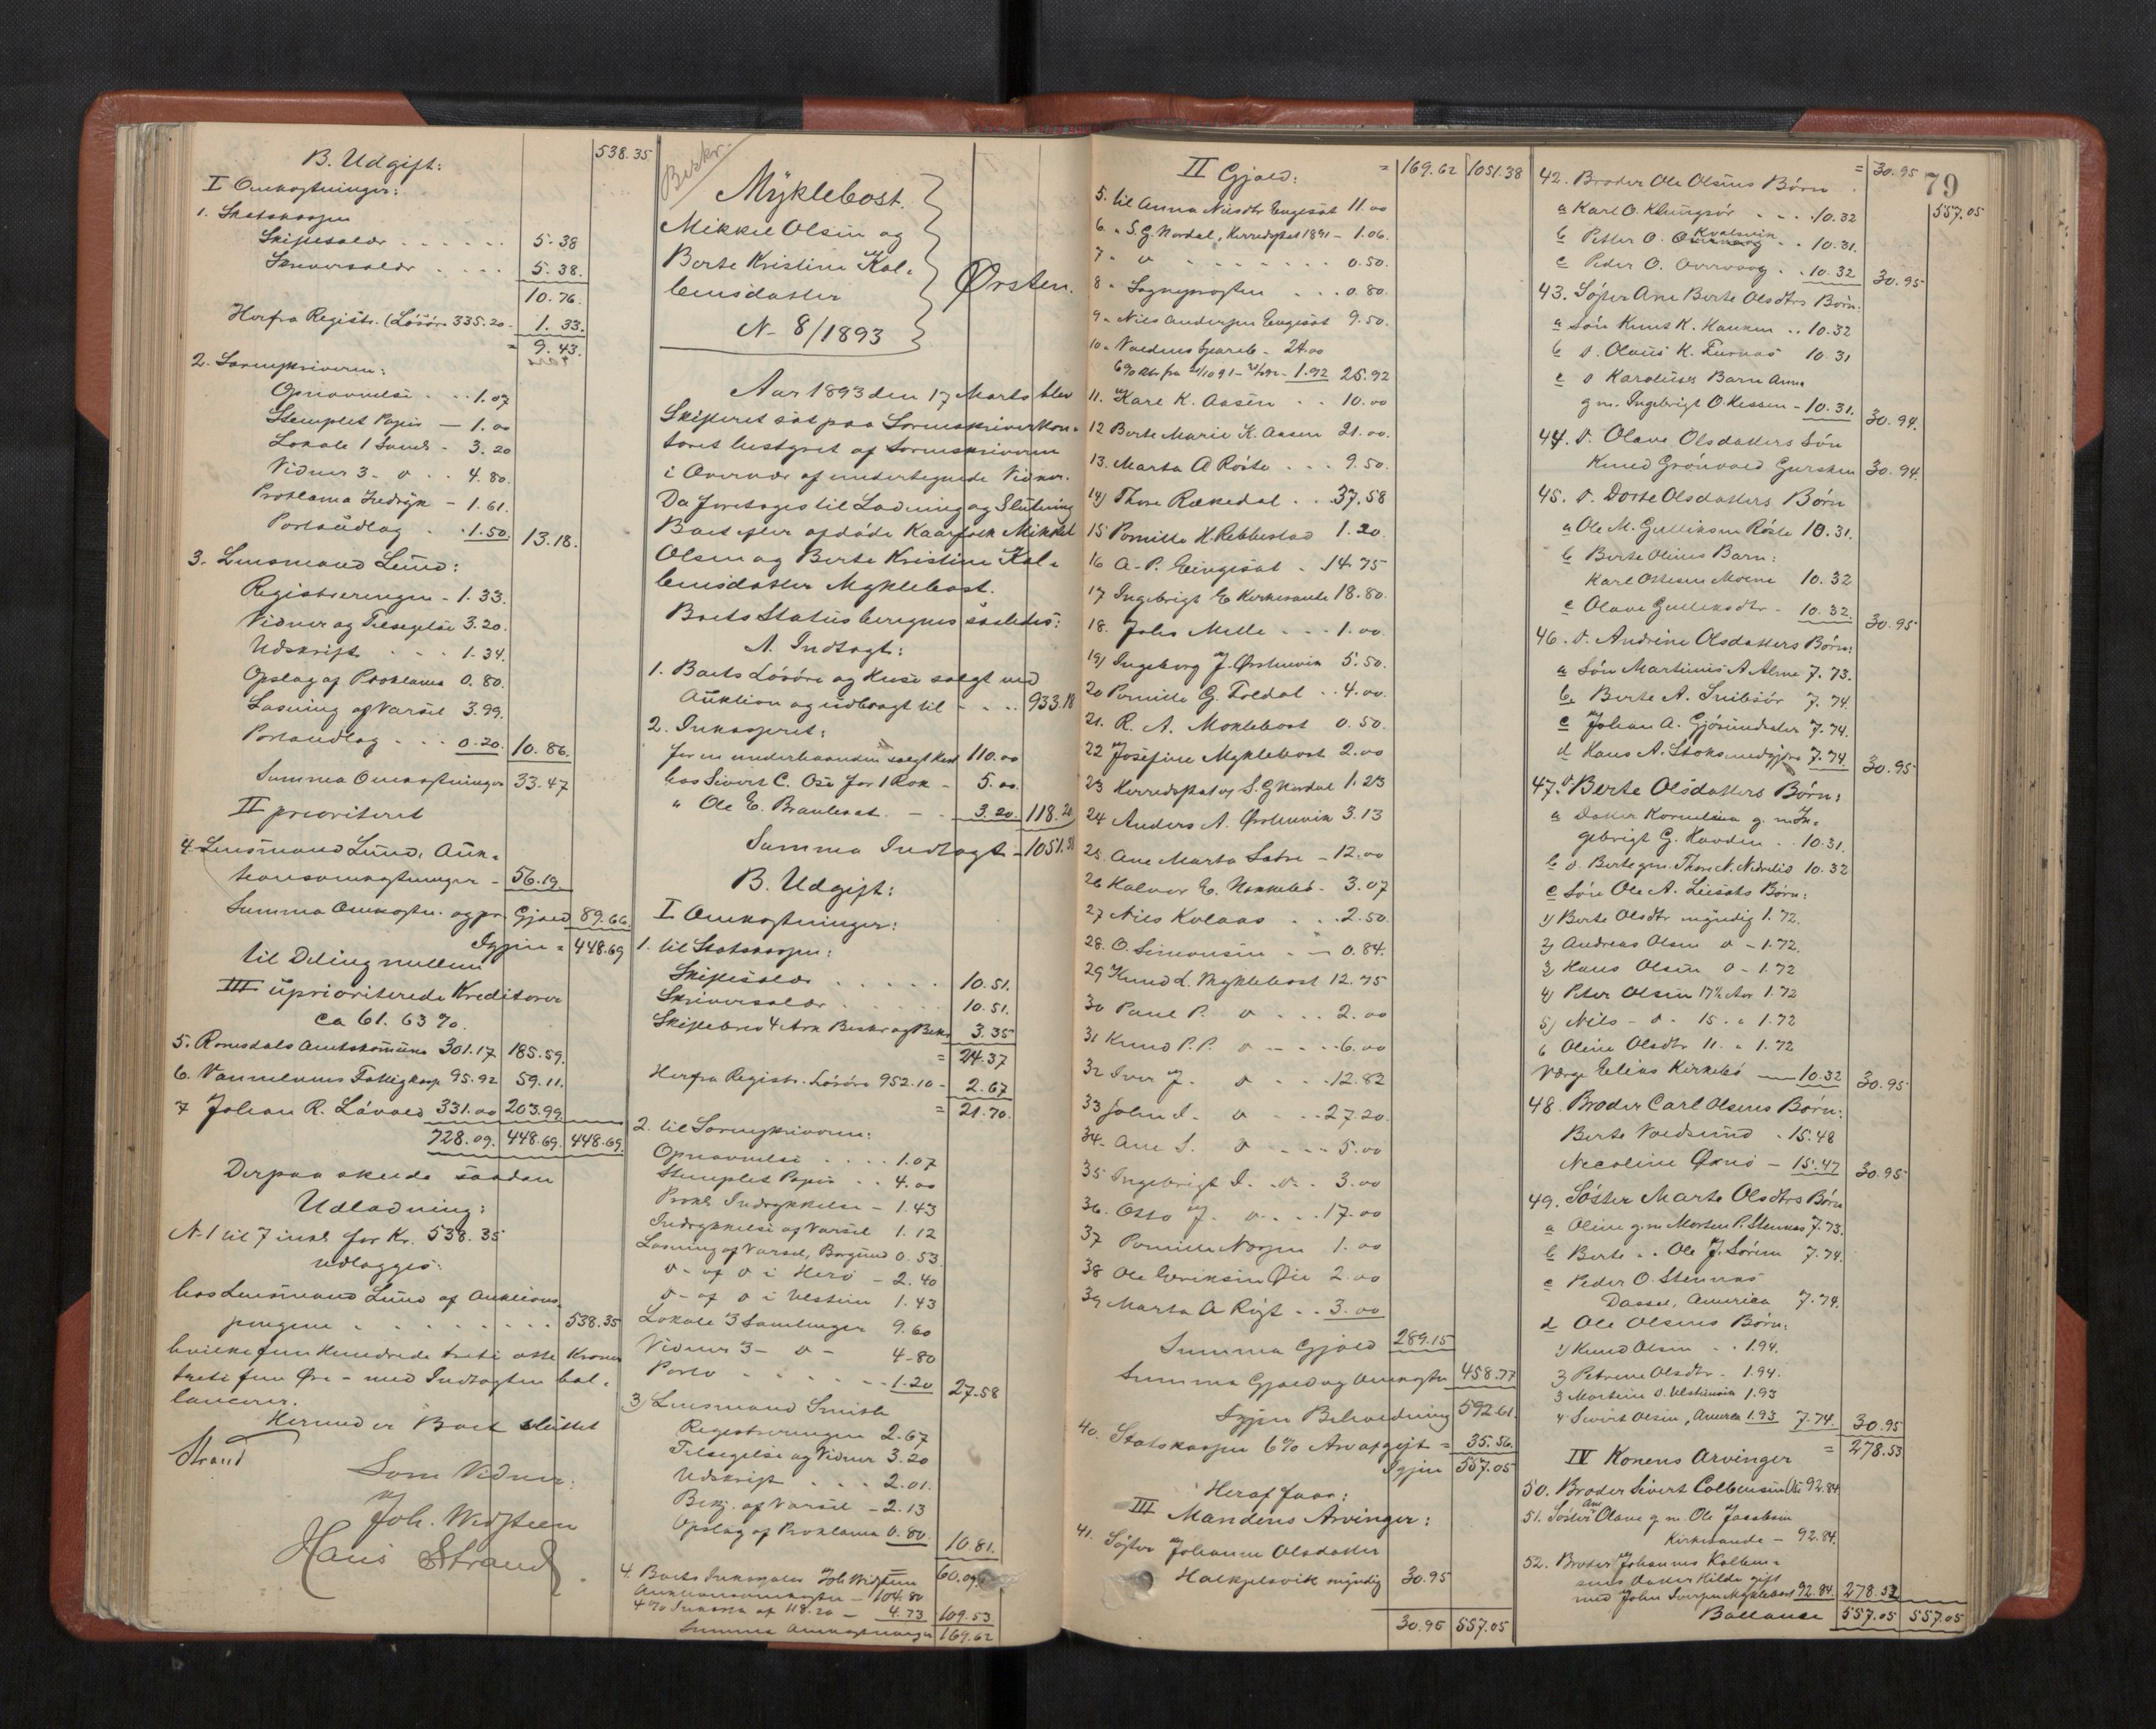 538.35
B. Udgift:
I Omkostninger:
1. Statskassen
Skiftesalær . . . . . . 5.38
Skriversalær . . . . 5.38.
10.76.
Herfra Registr. (Løsøre 335.20 - 1.33.
= 9.43.
2. Sorenskriveren:
Opnævnelse . . . 1.07
Stemplet Papir — 1.00
Lokale 1 Saml. - 3.20
Vidner 3 - o . . 4.80.
Proklama Indryk - 1.61.
Portoudlæg . . 1.50. 13.18.
3. Lensmand Lund:
Registreringen - 1.33.
Vidner og Tilsigelse 3.20.
Udskrift . . . 1.34.
Opslag af Proklama 0.80.
Læsning af Varsel 3.99.
Portoudlæg . . . 0.20. 10.86.
Summa Omkostninger 33.47
II prioriteret
4. Lensmand Lund, Auk-
tionsomkostninger - 56.19
Summa Omkostn. og pr. Gjæld 89.66.
Igjen = 448.69
til Deling mellem
III uprioriterede Kreditorer
ca 61.63%.
5. Romsdals Amtskommune 301.17 185.59.
6. Vannelvens Fattigkasse 95.92 59.11.
7 Johan R. Låvold 331.00 203.99.
728.09. 448.69. 448.69.
Derpaa skede saadan
Udlodning:
N. 1 til 7 inkl. for Kr. 538.35
udlægges:
hos Lensmand Lund af Auktions-
pengene . . . . . . . . . 538.35
hvilke fem Hundrede treti otte Kroner
treti fem Øre - med Indtægten bal-
lancerer.
Hermed er Boet sluttet
Strand
Som Vidner:
Joh. Wedsteen
Hans Strand
Beskr.
Myklebost.
Mikkel Olsen og
Berte Kristine Kol-
bensdatter
N. 8/1893
Ørsten.
Aar 1893 den 17 Marts blev
Skifteret sat paa Sorenskriverkon-
toret bestyret af Sorenskriveren
i Overvær af undertegnede Vidner.
Da foretoges til Lodning og Slutning
Boet efter afdøde Kaarfolk Mikkel
Olsen og Berte Kristine Kol-
bensdatter Myklebost.
Boets Status beregnes saaledes:
A. Indtægt:
1. Boets Løsøre og Huse solgt ved
Auktion og udbragt til - . . . 933.18
2. Inkasseret:
for en underhaanden solgt Hest 110.00
hos Sivert C. Ose for 1 Rok - 5.00
" Ole E. Brauteset. — . 3.20. 118.20
Summa Indtægt - 1051.38
B. Udgift:
I Omkostninger:
1. til Statskassen:
Skiftesalær . . . . . . 10.51.
Skriversalær . . . . . 10.51.
Skiftebrev 4 Ark Beskr og Bek. 3.35
= 24.37
Herfra Registr. Løsøre 952.10 - 2.67
= 21.70.
2. til Sorenskriveren:
Opnævnelse . . . . 1.07
Stemplet Papir . . 4.00
Prokl. Indrykkelse - 1.43
Indrykkelse af Varsel 1.12
Læsning af Varsel, Borgund 0.53
o - af o i Herø - 2.40
o - af o i Ulstein 1.43
Lokale 3 Samlinger 9.60
Vidner 3 - o - 4.80
Porto . . . . . . 1.20 27.58
3) Lensmand Smith
Registreringen 2.67
Tilsigelse og Vidner 3.20
Udskrift . . . 2.01.
Bekj. af Varsel - 2.13
Opslag af Proklama 0.80. 10.81.
60.09
4. Boets Inkassator Joh Wedsteen
Auktionsomkostn - 104.80
4% Inkasso af 118.20 — 4.73 109.53
Summa Omkostninger 169.62
II Gjæld: = 169.62 1051.38
5. til Anna Nilsdtr Engeset 11.00
6. " S. G. Nordal, Herredsskat 1891 - 1.06.
7 " o - - - - - - - 0.50.
8 " Sogneprosten . . . 0.80.
9 " Nils Andersen Engeset 9.50.
10 " Voldens Spareb. - 24.00
6% Rtr fra 21/10 91 - 21/2 92 - 1.92 25.92
11. Karl K. Aasen . . 10.00
12 Berte Marie K. Aasen 21.00.
13. Marta A Røste . . . 9.50.
14) Thore Rækedal . . 37.58
15 Pernille K. Rebbestad 1.20.
16 A. P. Engeset . 14.75
17 Ingebrigt E Kirkesande 18.80.
18. Johs Melle . . . 1.00.
19) Ingeborg J. Ørstenvik 5.50.
20 Pernille G. Foldal . . 4.00.
21. R. A. Myklebost 0.50.
22 Josefine Myklebost 2.00
23 Herredsskat og S. G Nordal 1.23
24 Anders A. Ørstenvik 3.13
25. Ane Marta Sætre - 12.00
26 Halvor E. Nonkelid . 3.07
27 Nils Kolaas . . . 2.50.
28. O. Simonsen . — 0.84.
29 Knud L. Myklebost 12.75
30 Paul P. o . . . 2.00
31 Knud P.P. o — - . 6.00
32 Iver J. o . . . 12.82
33 John I. o . . 27.20.
34. Ane S. o - - - 5.00
35 Ingebrigt I. . o . . 3.00
36. Otto J. o . . . 17.00
37 Pernille Nossen 1.00
38 Ole Eriksen Øie 2.00
39 Marta A Rist . . 3.00
Summa Gjæld 289.15
Summa Gjæld og Omkostn 458.77
Igjen Beholdning 592.61.
40. Statskassen 6% Arveafgift = 35.56.
Igjen 557.05
Heraf faar:
III Mandens Arvinger:
41. Søster Johanne Olsdatter
Halkjelsvik myndig 30.95
30.95 557.05
79
= 30.95 557.05
42. Broder Ole Olsens Børn
a Karl O. Klungsør . . . . 10.32
b Petter O. Kvalsvik . . 10.31.
c Peder O. Overvaag . . 10.32 30.95
43. Søster Ane Berte Olsdtrs Børn:
a Søn Knut K. Hauken . . 10.32
b o. Olaus K. Furnæs 10.31
c o Karoluses Barn Anna
g m. Ingebrigt O. Hessen - 10.31. 30.94.
44. o. Olave Olsdatters Søn
Knud Grønvold Gursken 30.94
45. o. Dorte Olsdatters Børn
a Ole M. Gulliksen Røste 10.31.
b Berte Olines Barn:
Karl Ottesen Moene 10.32
c Olave Gulliksdtr - 10.32. 30.95
46. o. Andrine Olsdatters Børn:
a Søn Martinus A Alme 7.73.
b Berte A. Snibsør 7.74.
c Johan A. Gjøsundsæter 7.74.
d Hans A. Stoksundgjære 7.74. 30.95
47. o Berte Olsdatters Børn:
a Datter Kornelia g. m. In-
gebrigt G. Hovden . . 10.31.
b o. Berte gm. Thore N. Nedrelid 10.32
c Søn Ole A. Leisets Børn:
1) Berte Olsdtr myndig 1.72.
2) Andreas Olsen o - 1.72.
3) Hans Olsen o - 1.72
4) Peter Olsen 17½ Aar 1.72
5) Nils - o - 15 . " 1.72
6 Oline Olsdtr 11. " 1.72
Værge Elias Kirkebø — 10.32 30.95
48. Broder Carl Olsens Børn:
Berte Voldsund . 15.48
Necoline Øxnø — 15.47 30.95
49. Søster Marte Olsdtrs Børn
a Oline g m Morten P. Stennæs 7.73.
b Berte . . Ole J. Sørem 7.74.
c Peder O. Stennæs
Dassel, America 7.74.
d Ole Olsens Børn:
1) Knud Olsen . . 1.94.
2 Petrine Olsdtr . 1.94.
3 Martine o. Ulsteinvik 1.93
4 Sivert Olsen, America 1.93 7.74. 30.95
= 278.53
IV Konens Arvinger
50. Broder Sivert Colbensen Øie 92.84
51. Søster Ane Olave g m. Ole Jacobsen
Kirkesande - 92.84.
52. Broder Johannes Kolben-
sens datter Hilda gift
med John Iversen Myklebost 92.84 278.52
Ballance 557.05 557.05